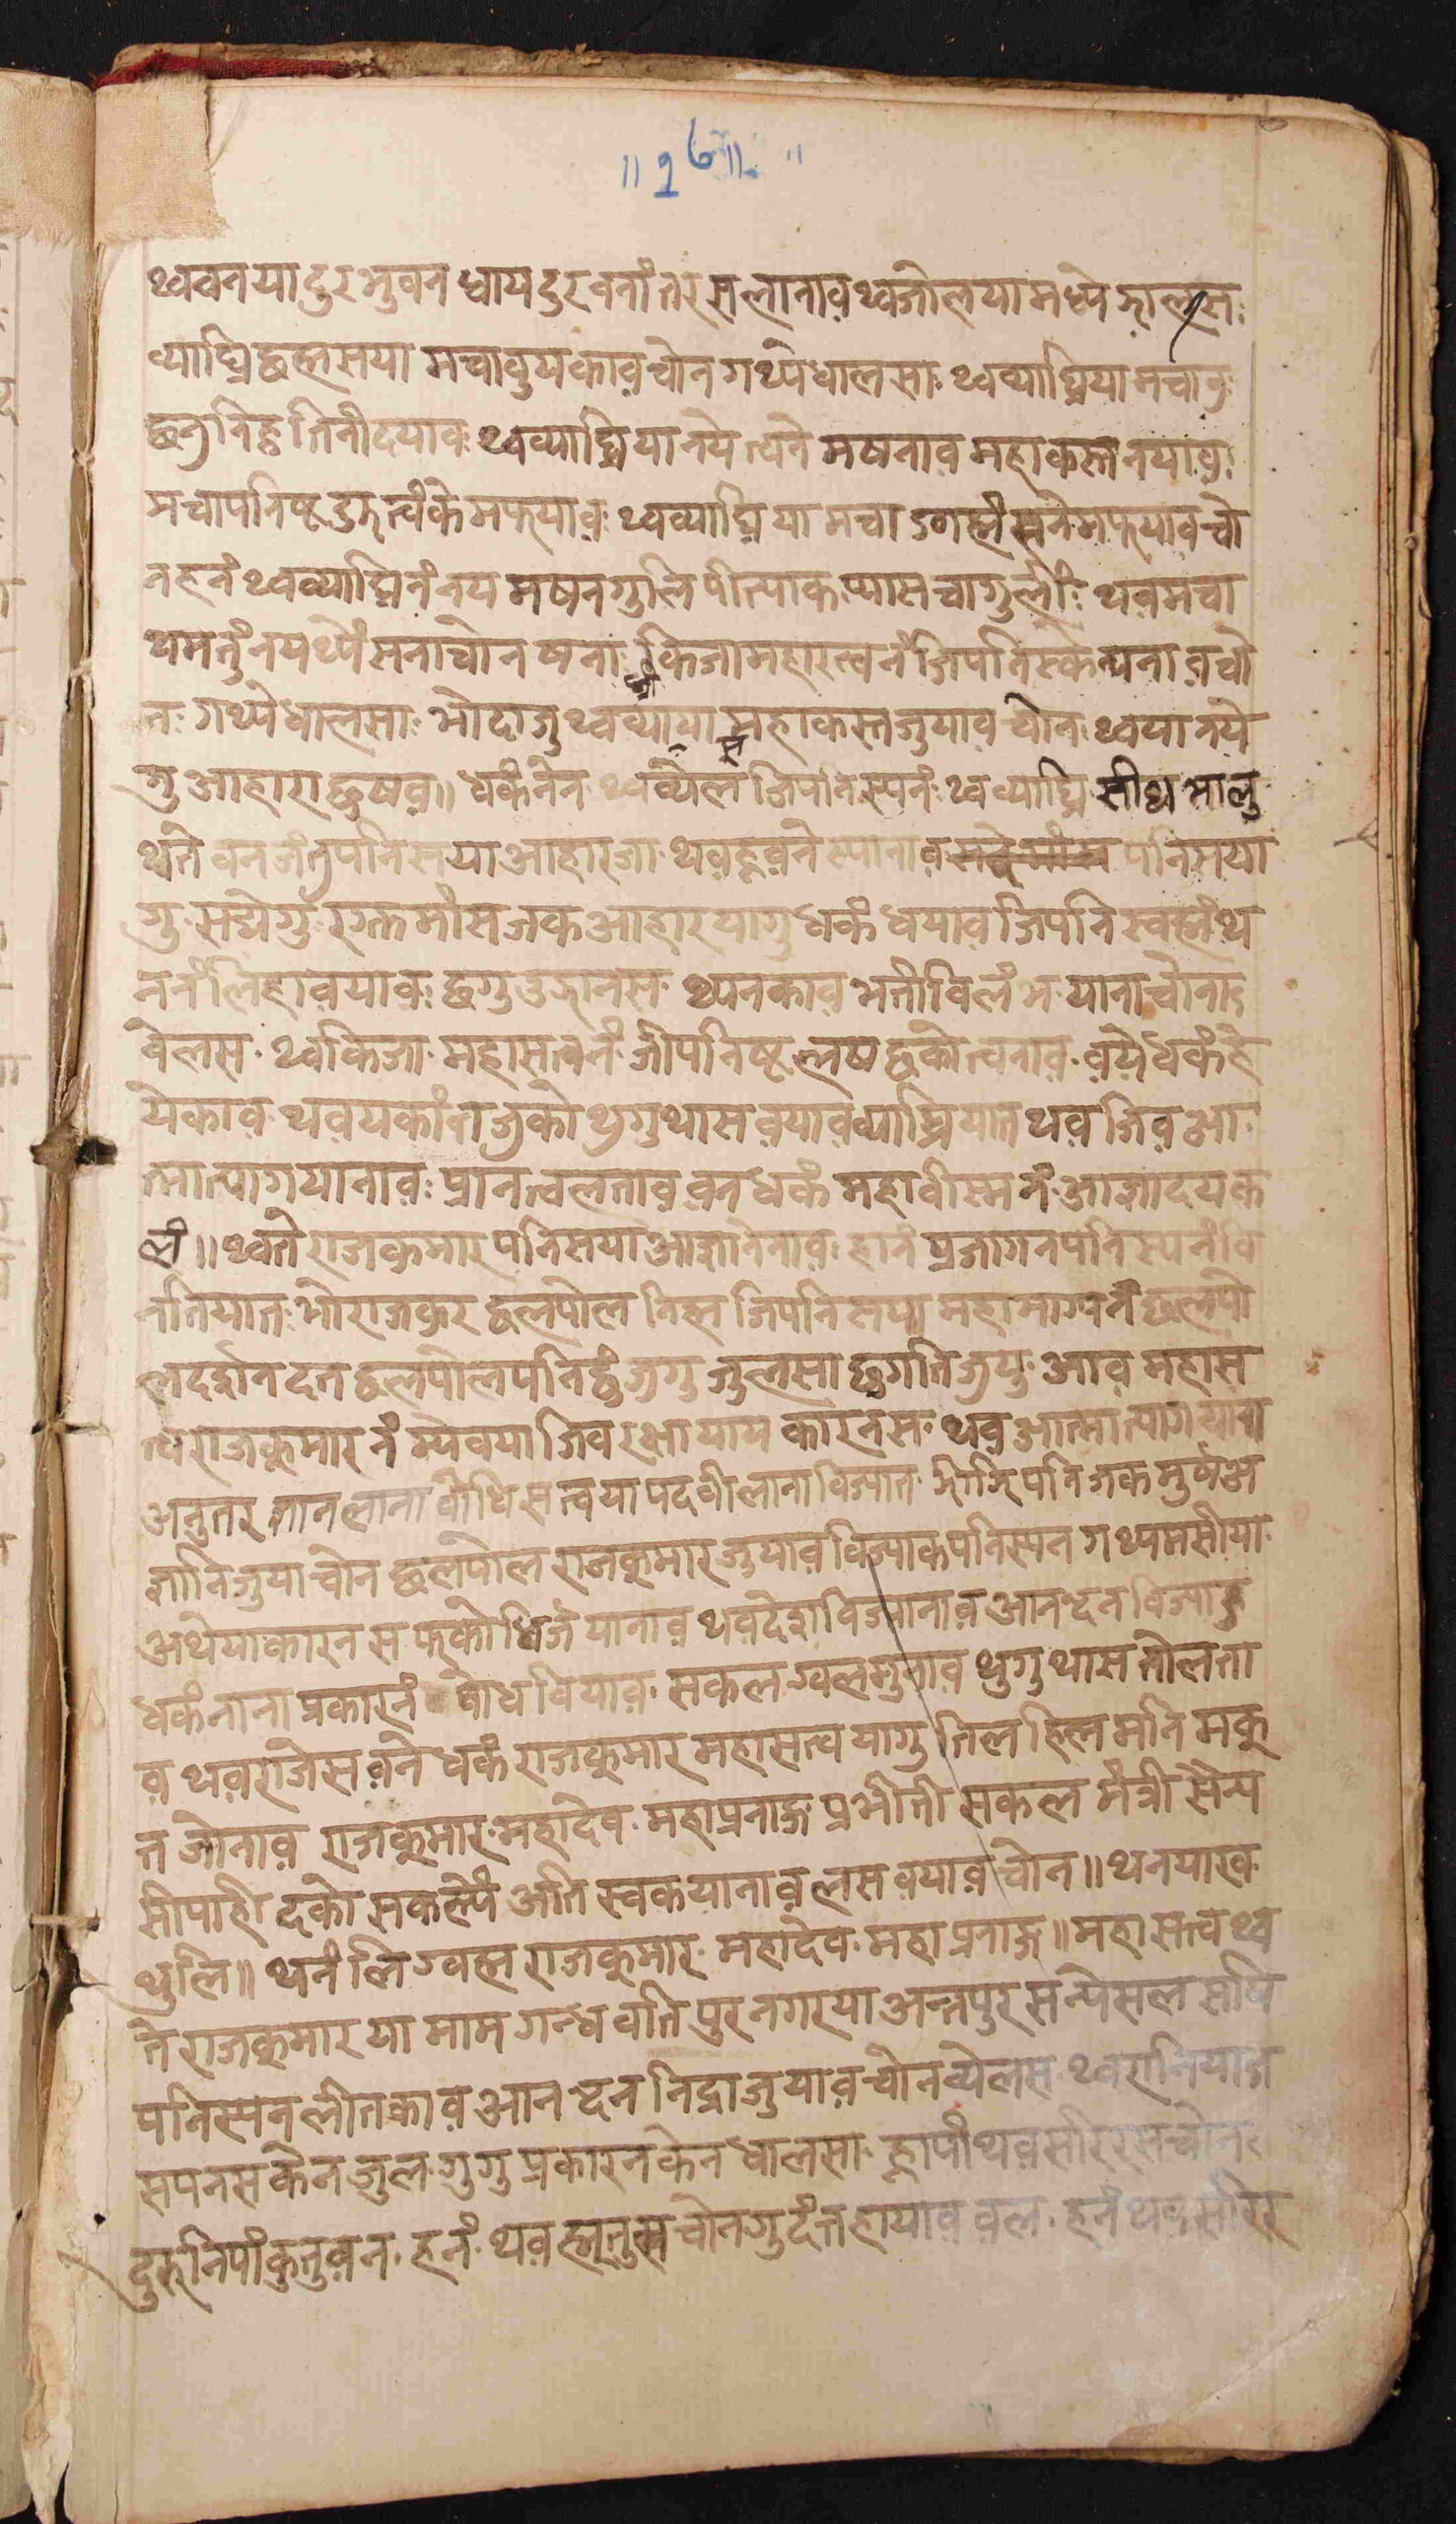 ॥१७॥ ॥
थ्ववनया दुर भुवन ध्वाय दुर वनांतर स लानाव थ्व जोलया मध्ये जालस
व्याघ्रि छह्मसया मचा बुयकाव चोन गथ्ये धालसा थ्व व्याघ्रिया मचा
छनु निह्नु तिनी दयाव थ्व व्याघ्रिया नये त्यने मषनाव महाकस्त नयाव
मचापनिष्ट दुरु त्वंके मफयाव थ्व व्याघ्रिया मचा सने मफयाव चो
न हनं थ्व व्याघ्रिनं नय मषनगुलि पीत्याक प्यास चागुलीं थव मचा
थमतुं नय थ्यें सनाचोन षना किजा महासत्वनं जिपनिस्के न्यना व चो
न गथ्ये धालसा भो दाजु थ्व व्याया महाकस्त जुयाव चोन थ्वया नये
गु आहारा छु षव॥ धकं नेन थ्व व्येल जिपनिस्यनं थ्व व्याघ्रि सीध भालु
थ्वते वनजंतुपनिसया आहार जा थव ह्नवने स्यानाव पनिसया
गु सद्येगु रगत मांस जक आहार यागु धकं धयाव जिपनि स्वह्मं थ
ननं लिहा वयाव छगु उद्यानस थ्यनकाव भती विलंभ याना चोना
वेलस थ्व किजा महासत्वनं जीपनिष्ट लष छको त्वनाव वये धकं हे
येकाव थव यकांत जुको थुगु थास वयाव व्याघ्रियात थव जिव आ
त्मा त्याग यानाव प्रान त्वलताव वन धकं महावीस्मनं आज्ञा दयक
लं॥ थ्वते राजकुमारपनिसया आज्ञा नेनाव हानं प्रजागनपनिस्यनं वि
नति यात भो राजकुर छलपोल निह्म जिपनिसया महाभाग्यनं छलपो
ल दर्दान दन छलपोलपनि छुं जुगु जुलसा छु गति जुयु आव महास
त्व राजकुमारनं म्येवया जिव रक्षा याय कारनस थव आत्मा त्याग याना
अनुतर ज्ञान लाना बोधिसत्वया पदवी लाना विज्यात जिजिपनि जक मुर्ष अ
ज्ञानि जुया चोन छलपोल राजकुमार जुयाव विज्याकपनिस्यन गथ्य मसीया
अथेया कारनस फुको धिर्ज यानाव थव देश विज्यानाव आनन्दन विज्याहु
धकं नाना प्रकारनं बोध वियाव सकल ग्वलमुनाव थुगु थास तोलता
व थव राजेस वने धकं राजकुमार महासत्वयागु तिलहिल मनि मकु
त जोनाव राजकुमार महादेव महाप्रनाद प्रभीती सकल मंत्री सैन्य
सीपाही दको सकल्यें अति स्वक यानाव लस वयाव चोन॥ थनया ख
थुलि॥ थनंलि ग्वह्म राजकुमार महादेव महाप्रनाद॥ महासत्व थ्व
ते राजकुमारया माम गन्धवति पुर नगरया अन्तपुरस न्येसल सषि
पनिस्यन लीतकाव आनन्दन निद्रा जुयाव चोन व्येलस थ्व रानियात
सपनस केन जुल गुगु प्रकारन केन धालसा ह्नापां थव सरिरस चोन
दुरुनिपां कुतु वन हनं थव ह्मुतुस चोनगु दंत हायाव वल हनं थव सरिर